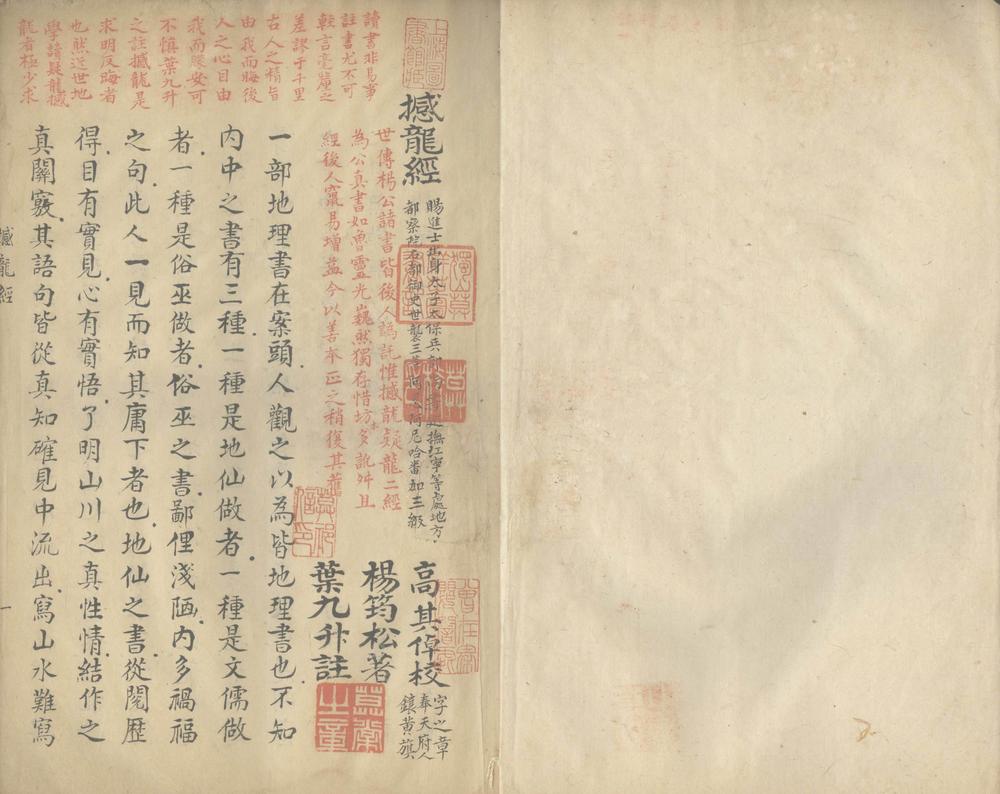 讀書非易事
註書尤不可
輕言毫釐之
差謬于千里
古人之精旨
由我而晦後
人之心目由
我而賺安可
不慎葉九升
之註撼龍是
求明反晦者
也然近世地
學諸疑龍撼
龍者極少求
撼龍經
賜進士出身太子太保兵部尚書巡撫江寧等處地方
都察院右都御史世襲三等阿阿尼哈番加三級
高其倬校
字之章
奉天府人
鑲黃旗
世傳楊公諸書皆後人謌託惟撼龍疑龍二經
楊筠松著
為公真書如魯靈光巍然獨存惜坊本多訛舛且
經後人竄易增益今以善本正之稍復其舊
葉九升註
一部地理書在案頭人觀之以為皆地理書也不知
內中之書有三種一種是地仙做者一種是文儒做
者一種是俗巫做者俗巫之書鄙俚淺陋內多禍福
之句此人一見而知其庸下者也地仙之書從閱歷
得目有實見心有實悟了明山川之真性情結作之
真關竅其語句皆從真知確見中流出寫山水難寫
撼龍經
一